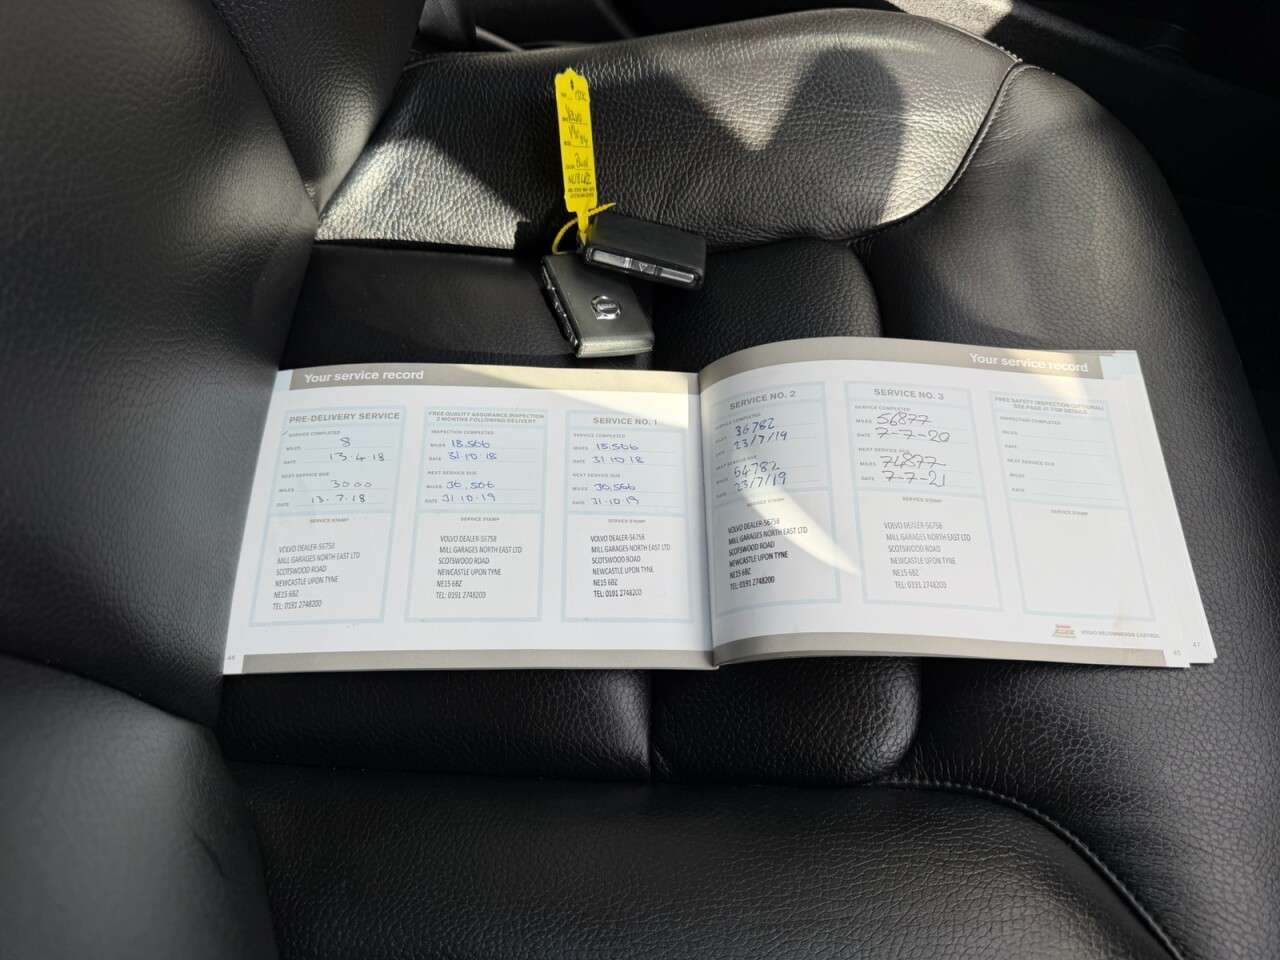 Volvo
Your service record
PRE-DELIVERY SERVICE
SERVICE COMPLETED
MILES 8
DATE 13.4.18
NEXT SERVICE DUE
MILES 3000
DATE 13.7.18
SERVICE STAMP
VOLVO DEALER-56758
MILL GARAGES NORTH EAST LTD
SCOTSWOOD ROAD
NEWCASTLE UPON TYNE
NE15 6BZ
TEL: 0191 2748200
FREE QUALITY ASSURANCE INSPECTION
2 MONTHS FOLLOWING DELIVERY
INSPECTION COMPLETED
MILES 18,566
DATE 31.10.18
NEXT SERVICE DUE
MILES 36,566
DATE 31.10.19
SERVICE STAMP
VOLVO DEALER-56758
MILL GARAGES NORTH EAST LTD
SCOTSWOOD ROAD
NEWCASTLE UPON TYNE
NE15 6BZ
TEL: 0191 2748200
SERVICE NO. 1
SERVICE COMPLETED
MILES 18,566
DATE 31.10.18
NEXT SERVICE DUE
MILES 36,566
DATE 31.10.19
SERVICE STAMP
VOLVO DEALER-56758
MILL GARAGES NORTH EAST LTD
SCOTSWOOD ROAD
NEWCASTLE UPON TYNE
NE15 6BZ
TEL: 0191 2748200
Your service record
SERVICE NO. 2
SERVICE COMPLETED
MILES 36782
DATE 23/7/19
NEXT SERVICE DUE
MILES 54782
DATE 23/7/19
SERVICE STAMP
VOLVO DEALER-56758
MILL GARAGES NORTH EAST LTD
SCOTSWOOD ROAD
NEWCASTLE UPON TYNE
NE15 6BZ
TEL: 0191 2748200
SERVICE NO. 3
SERVICE COMPLETED
MILES 56877
DATE 7-7-20
NEXT SERVICE DUE
MILES 74877
DATE 7-7-21
SERVICE STAMP
VOLVO DEALER-56758
MILL GARAGES NORTH EAST LTD
SCOTSWOOD ROAD
NEWCASTLE UPON TYNE
NE15 6BZ
TEL: 0191 2748200
FREE SAFETY INSPECTION (OPTIONAL)
SEE PAGE 41 FOR DETAILS
INSPECTION COMPLETED
MILES
DATE
NEXT SERVICE DUE
MILES
DATE
SERVICE STAMP
Castrol
EDGE
VOLVO RECOMMENDS CASTROL
44
45
47